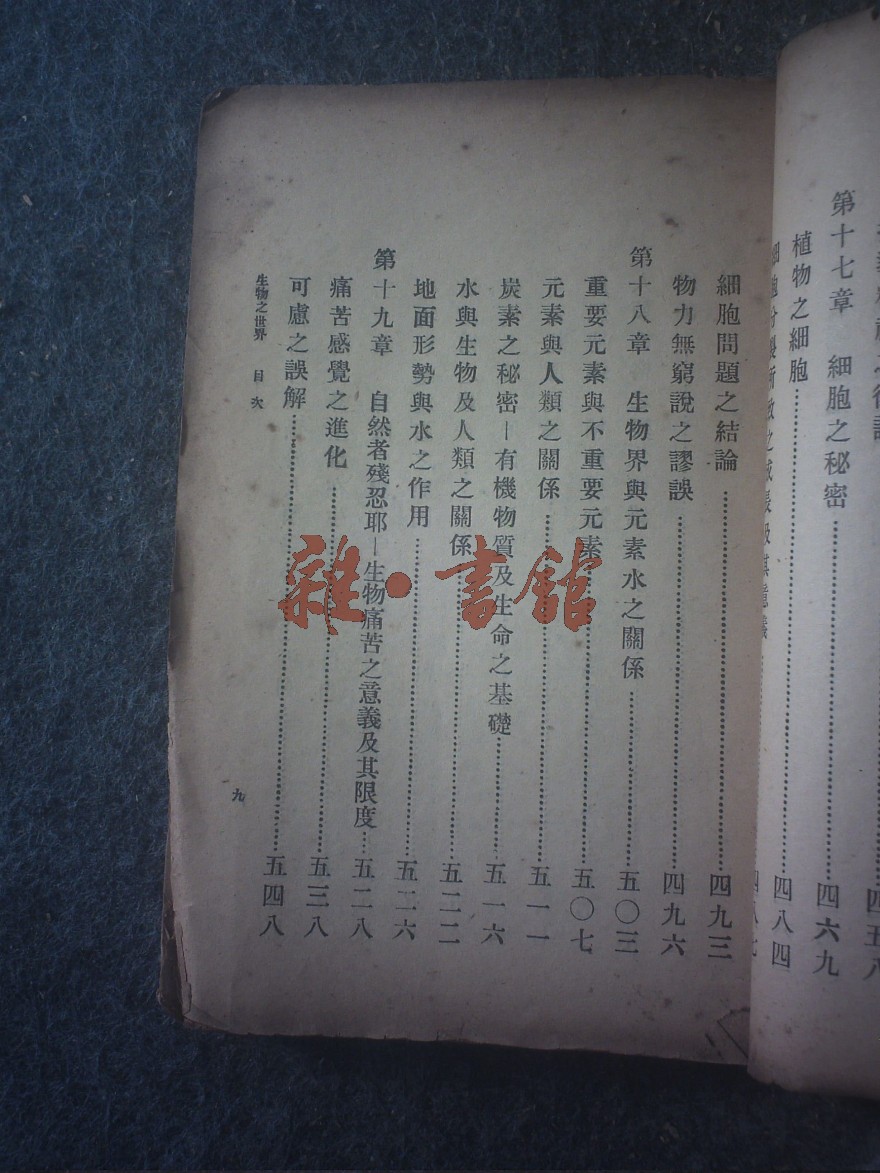 第十七章　細胞之秘密……四六九
植物之細胞……四八四
細胞分裂所致之成長及其意義……四八七
細胞問題之結論……四九三
物力無窮說之謬誤……四九六
第十八章　生物界與元素水之關係……五〇三
重要元素與不重要元素……五〇七
元素與人類之關係……五一一
炭素之秘密—有機物質及生命之基礎……五一六
水與生物及人類之關係……五二二
地面形勢與水之作用……五二六
第十九章　自然者殘忍耶—生物痛苦之意義及其限度……五二八
痛苦感覺之進化……五三八
可慮之誤解……五四八
生物之世界　目次
九
雜·書館